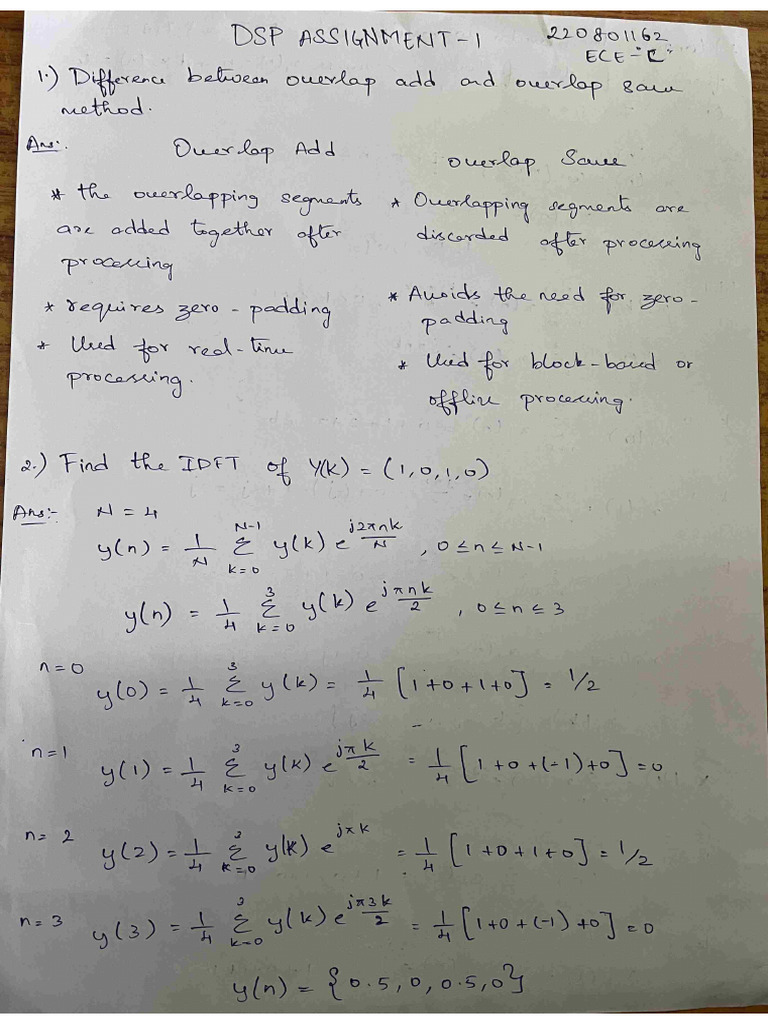 DSP ASSIGNMENT-1 220801162
ECE-"C"
1.) Difference between overlap add and overlap save
method.
Ans:.
Overlap Add
* the overlapping segments
are added together after
processing
* requires zero-padding
* Used for real-time
processing.
Overlap Save
* Overlapping segments are
discarded after processing
* Avoids the need for zero-
padding
* Used for block-based or
offline processing.
2.) Find the IDFT of Y(K) = (1,0,1,0)
Ans:- N = 4
y(n) = 1/N Σ_{k=0}^{N-1} y(k) e^{j2πnk/N}, 0 ≤ n ≤ N-1
y(n) = 1/4 Σ_{k=0}^{3} y(k) e^{jπnk/2}, 0 ≤ n ≤ 3
n=0 y(0) = 1/4 Σ_{k=0}^{3} y(k) = 1/4 [1+0+1+0] = 1/2
n=1 y(1) = 1/4 Σ_{k=0}^{3} y(k) e^{jπk/2} = 1/4 [1+0+(-1)+0] = 0
n=2 y(2) = 1/4 Σ_{k=0}^{3} y(k) e^{jπk} = 1/4 [1+0+1+0] = 1/2
n=3 y(3) = 1/4 Σ_{k=0}^{3} y(k) e^{jπ3k/2} = 1/4 [1+0+(-1)+0] = 0
y(n) = {0.5, 0, 0.5, 0}